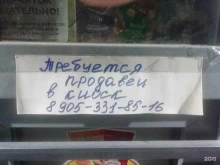 ТЕЛЬНО!
Требуется
продавец
в киоск
8 905-331-85-16
2GIS